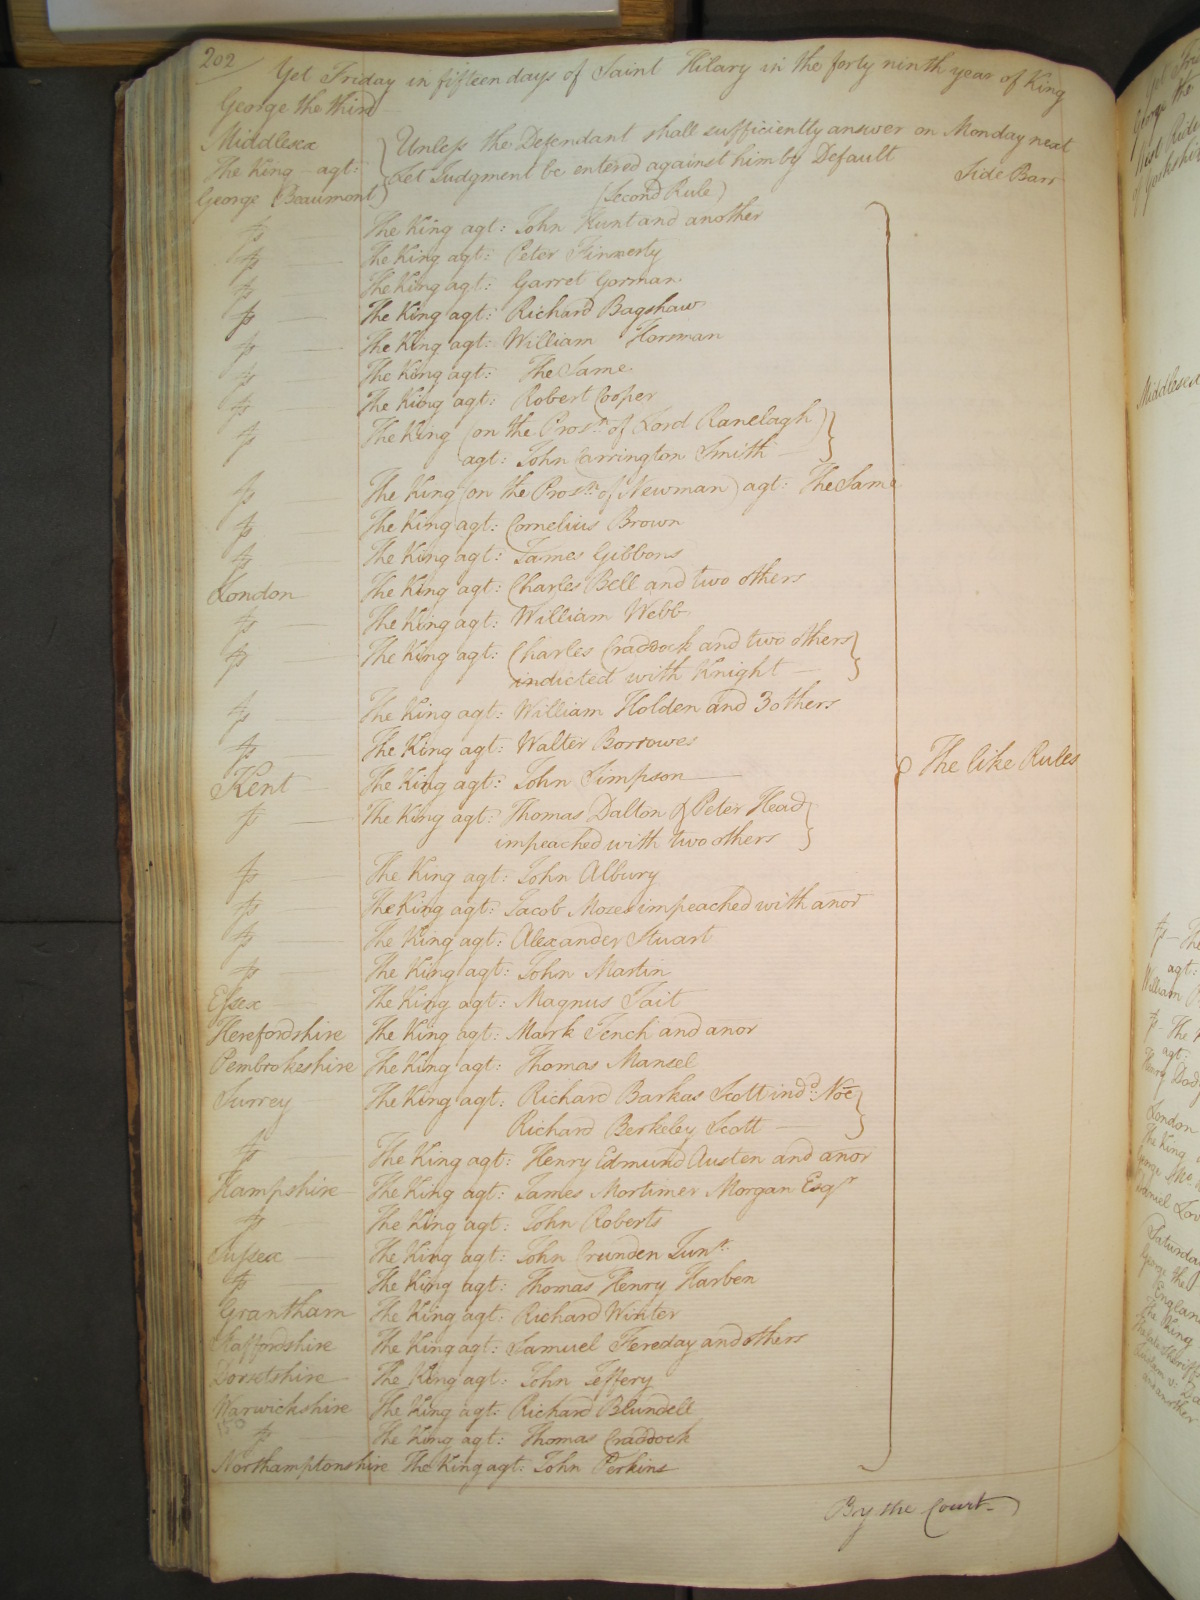 202
Yet Friday in fifteen days of Saint Hilary in the forty ninth year of King
George the third
Middlesex
The King agt:
George Beaumont
Unless the Defendant shall sufficiently answer on Monday next
Let Judgment be entered against him by Default
Side Barr
(Second Rule)
The King agt: John Hunt and another
The King agt: Peter Finnerty
The King agt: Garret Gorman
The King agt: Richard Bagshaw
The King agt: William Horsman
The King agt: The Same
The King agt: Robert Cooper
The King (on the Prosn. of Lord Ranelagh)
agt: John Carrington Smith
The King (on the Prosn. of Newman) agt: The Same
The King agt: Cornelius Brown
The King agt: James Gibbons
London The King agt: Charles Bell and two others
The King agt: William Webb
The King agt: Charles Craddock and two others
indicted with Knight
The King agt: William Holden and 3 others
The King agt: Walter Borrowes
The like Rules
Kent The King agt: John Simpson
The King agt: Thomas Dalton & Peter Head
impeached with two others
The King agt: John Albury
The King agt: Jacob Moses impeached with anor
The King agt: Alexander Stuart
The King agt: John Martin
Essex The King agt: Magnus Tait
Herefordshire The King agt: Mark Fench and anor
Pembrokeshire The King agt: Thomas Mansel
Surrey The King agt: Richard Barkas Scott indd. Noe
Richard Berkeley Scott
The King agt: Henry Edmund Austen and anor
Hampshire The King agt: James Mortimer Morgan Esqr
The King agt: John Roberts
Sussex The King agt: John Crunden Junr.
The King agt: Thomas Henry Harben
Grantham The King agt: Richard Winter
Staffordshire The King agt: Samuel Fereday and others
Dorsetshire The King agt: John Jeffery
Warwickshire The King agt: Richard Blundell
The King agt: Thomas Craddock
Northamptonshire The King agt: John Perkins
By the Court
George the
West Ridi
Middlesex
agt:
William
agt:
London
The King
Saturday
George the
England
The King
and another